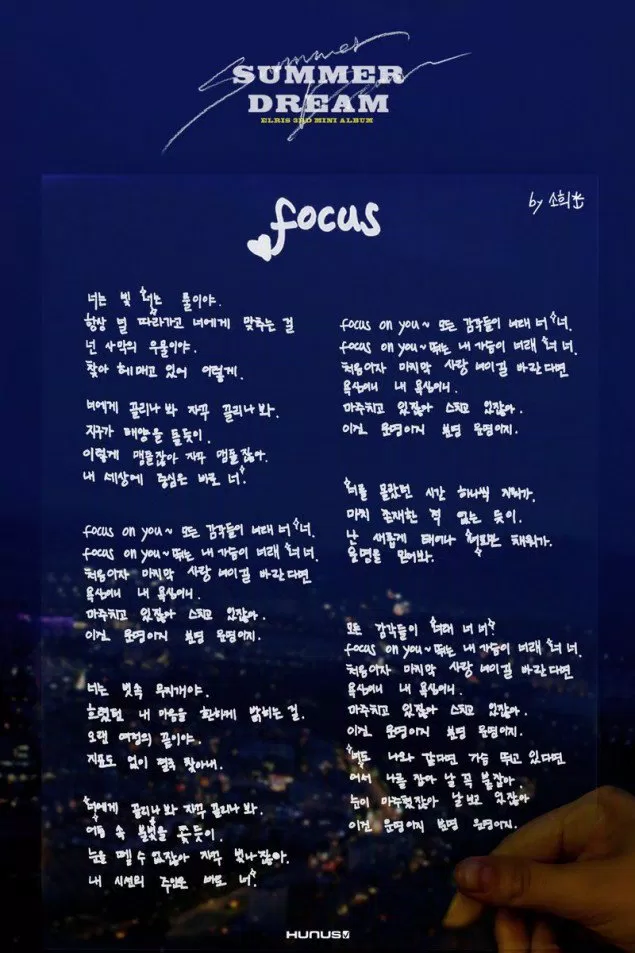 Summer
SUMMER
DREAM
ELRIS 3RD MINI ALBUM
focus
by 소희
너는 빛 너는 물이야.
항상 널 따라가고 너에게 맞추는 걸
넌 사막의 우물이야.
찾아 헤매고 있어 이렇게.
너에게 끌리나 봐 자꾸 끌리나 봐.
지구가 태양을 돌듯이.
이렇게 맴돌잖아 자꾸 맴돌잖아.
내 세상에 중심은 바로 너.
focus on you~ 모든 감각들이 너래 너 너.
focus on you~ 뛰는 내 가슴이 너래 너 너.
처음이자 마지막 사랑 너이길 바란다면
욕심이니 내 욕심이니.
마주치고 있잖아 스치고 있잖아.
이건 운명이지 분명 운명이지.
너는 빗속 무지개야.
흐렸던 내 마음을 환하게 밝히는 걸.
오랜 여정의 끝이야.
지도도 없이 헤매 찾아내.
너에게 끌리나 봐 자꾸 끌리나 봐.
어둠 속 불빛을 쫓듯이.
눈을 뗄 수 없잖아 자꾸 빛나잖아.
내 시선의 주인은 바로 너.
focus on you~ 모든 감각들이 너래 너 너.
focus on you~ 뛰는 내 가슴이 너래 너 너.
처음이자 마지막 사랑 너이길 바란다면
욕심이니 내 욕심이니.
마주치고 있잖아 스치고 있잖아.
이건 운명이지 분명 운명이지.
너를 몰랐던 시간 하나씩 지워가.
마치 존재한 적 없는 듯이.
난 새롭게 태어나 너로만 채워가.
운명을 믿어봐.
모든 감각들이 너래 너 너
focus on you~ 뛰는 내 가슴이 너래 너 너.
처음이자 마지막 사랑 너이길 바란다면
욕심이니 내 욕심이니.
마주치고 있잖아 스치고 있잖아.
이건 운명이지 분명 운명이지.
너도 나와 같다면 가슴 뛰고 있다면
어서 나를 잡아 날 꼭 붙잡아.
눈이 마주쳤잖아 날 보고 있잖아
이건 운명이지 분명 운명이지.
HUNUS